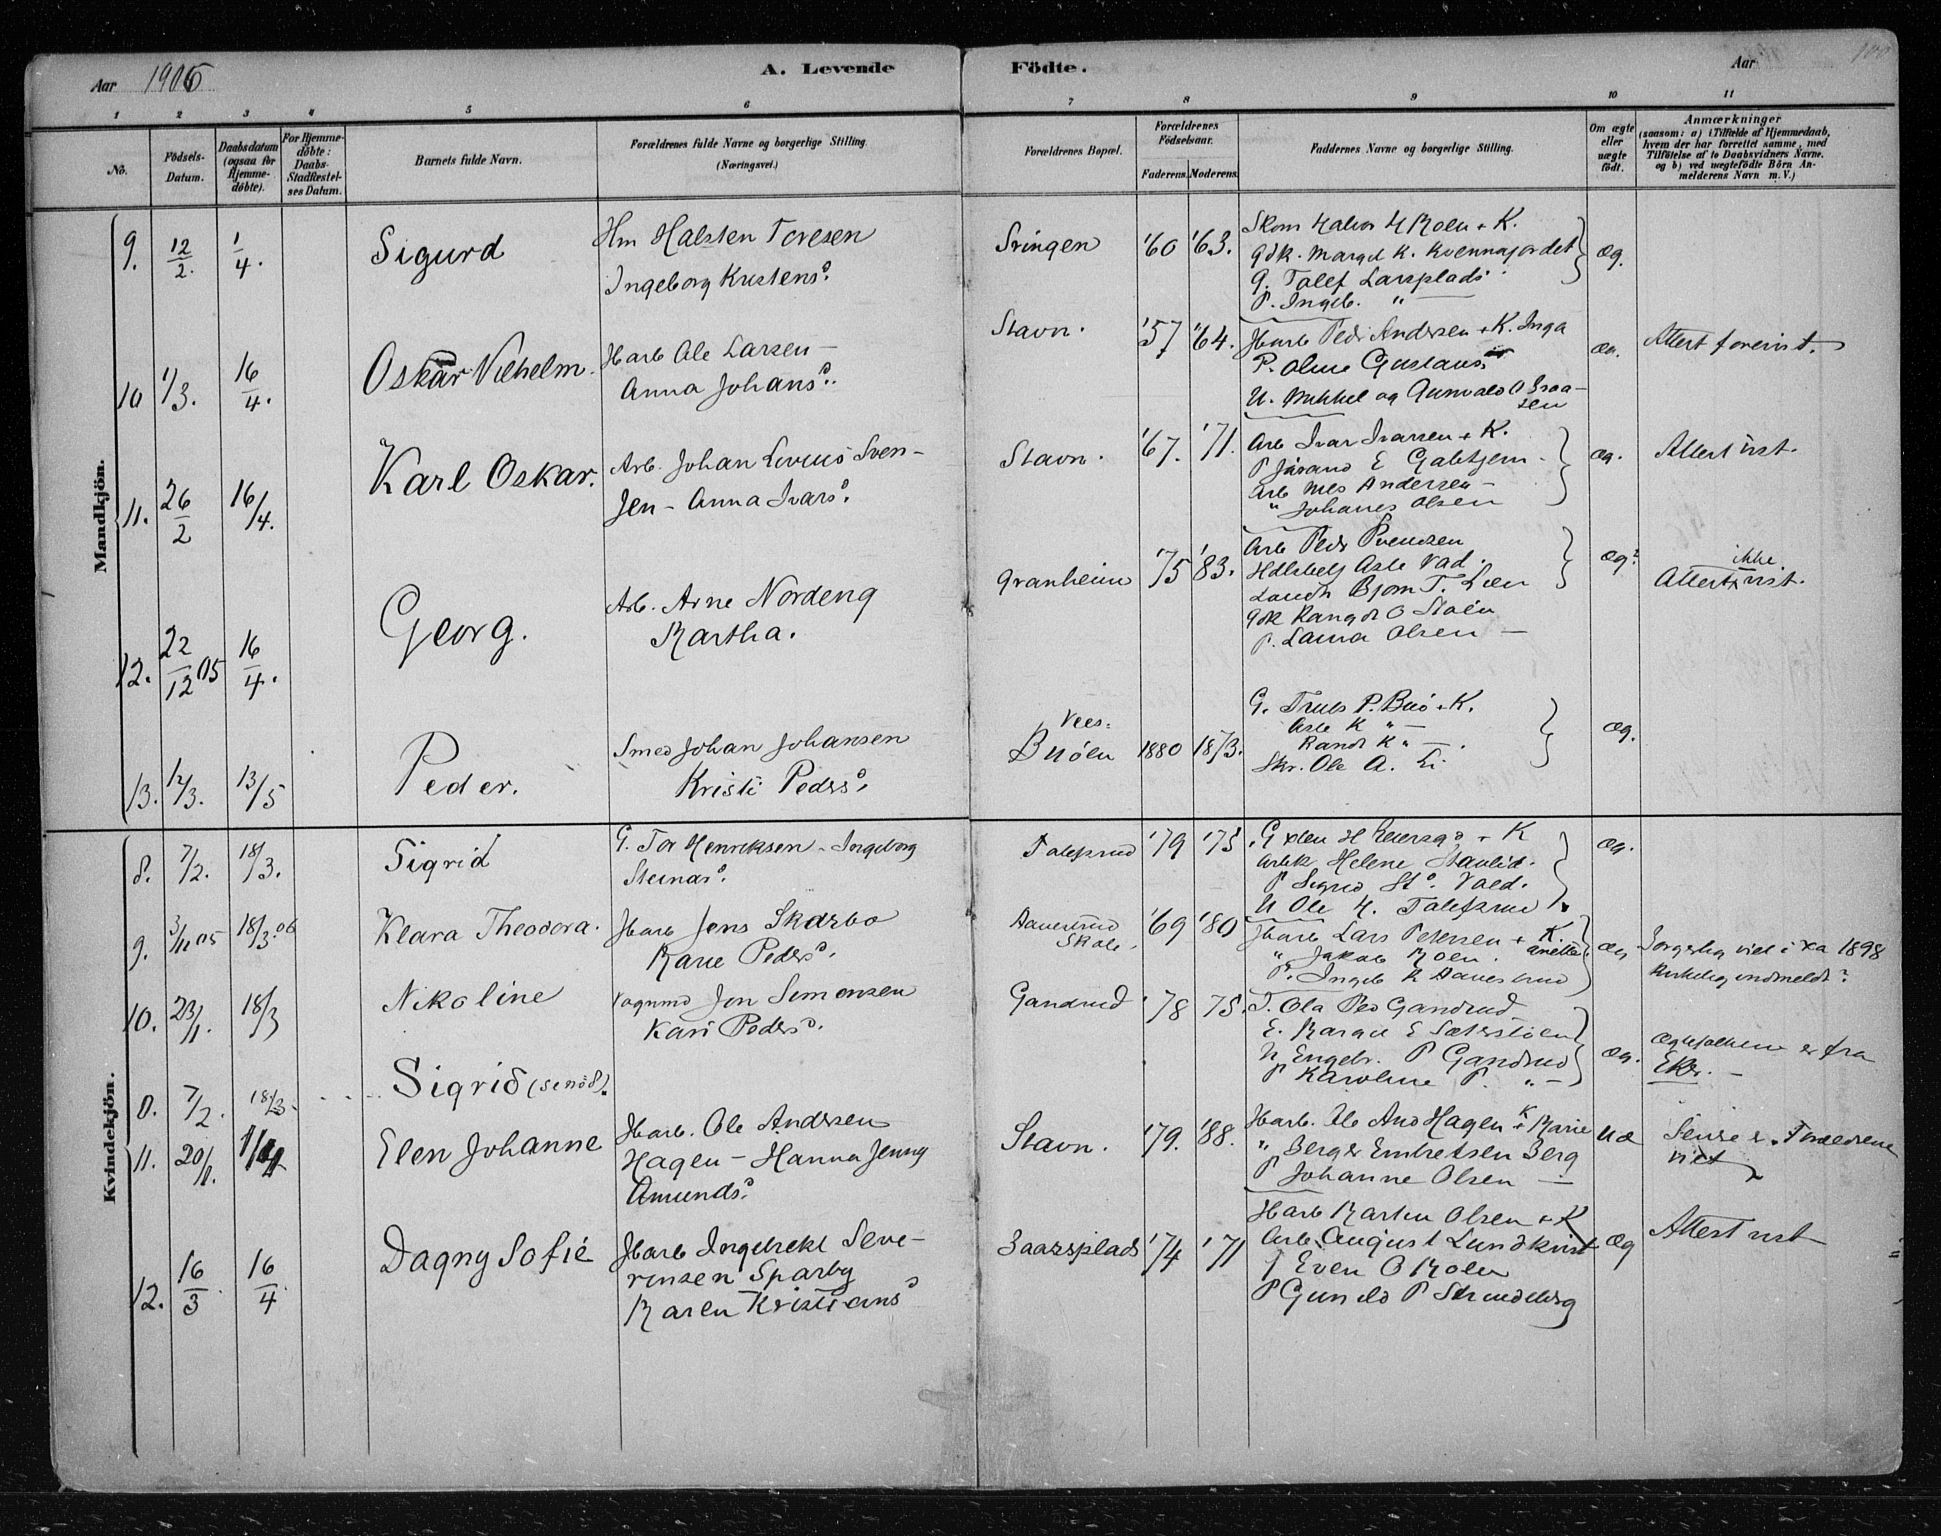 Aar 1906
A. Levende Födte.
Aar 100
1 2 3 4 5 6 7 8 9 10 11
No.
Födsels-Datum.
Daabsdatum (ogsaa for Hjemme-döbte).
For Hjemme-döbte: Daabs-Stadfæstel-ses Datum.
Barnets fulde Navn.
Forældrenes fulde Navne og borgerlige Stilling (Næringsvei.)
Forældrenes Bopæl.
Forældrenes Födselsaar.
Faderens. Moderens.
Faddernes Navne og borgerlige Stilling.
Om ægte eller uægte födt.
Anmærkninger
(saasom: a) i Tilfælde af Hjemmedaab,
hvem der har forrettet samme, med
Tilföielse af to Daabsvidners Navne,
og b) ved uegtefödte Börn An-
melderens Navn m. V.)
Mandkjön.
9. 12/2. 1/4. Sigurd
Hm Halsten Toresen
Ingeborg Kristensd.
Svingen '60 '63.
Skom Halvor H Moen + K.
Gdk. Margit K. Kvennajordet
G. Tolef Larsplads
P. Ingeb. "
Æg.
10 1/3. 16/4. Oskar Vilhelm.
Jbarb Ole Larsen
Anna Johansd.
Stavn. '57 '64.
Jbarb Peder Andersen + K. Inga
P. Oline Gustavsd
U. Mikkel og Gunvald O Braa-
sen
Æg.
Attest forevist.
11. 26/2 16/4. Karl Oskar.
Arb. Johan Livius Sven-
sen - Anna Ivarsd.
Stavn. '67. '71.
Arb Ivar Ivarsen + K.
P Jörand E Galtjern
Arb Nils Andersen
" Johanes Olsen
Æg.
Attest vist.
12. 22/12 05 16/4. Georg.
Arb. Arne Nordeng
Martha.
Granheim '75 '83.
Arb Peder Svendsen
Asle Vad.
Landh Bjorn T. Lien
Gdk Rangdi O Stoen
P. Laura Olsen
Æg?
Attest ikke vist.
13. 12/3. 13/5 Peder.
Smed Johan Johansen
Kristi Pedersd.
Nees-
Buölen 1880 1873.
G. Truls P. Buö + K.
Asle K "
Randi K "
Skr. Ole A. Li
Æg.
Kvindekjön.
8. 7/2. 18/3. Sigrid
G. Tor Henriksen - Ingeborg
Steinarsd.
Tolefsrud '79 '75.
G H + K
Arbk Helene Stavlid.
P Sigrid St. Vold.
U Ole H. Tolefsrud
Æg.
9. 3/11 05 18/3. 06 Klara Theodora.
Jbarb Jens Skarbo
Marie Pedersd.
Aavestrud
Skole. '69 '80
Jbarb Lars Petersen + K. Anette
" Jakob Moen.
P. Ingeb R Aavestrud
Æg
Borgerlig viet i Xa 1898
Kirkelig indmeldt?
10. 23/1. 18/3 Nikoline
Vognmd Jon Simensen
Kari Pedersd.
Gandrud '78 75.
T. Ola Ped Gandrud
E. Margit E Sæterstöen
U Engebr. P Gandrud
P Karoline P. "
Æg.
Ægtefolkene er fra
Eker.
0. 7/2. 18/3. Sigrid (se no 8).
11. 20/1. 1/4 Elen Johanne
Jbarb. Ole Andersen
Hagen - Hanna Jenny
Amundsd.
Stavn. '79. '88.
Jbarb. Ole And Hagen + K Marie
" Berger Embretsen Berg
P Johanne Olsen
Uæ
Senere Forældrene
viet
12. 16/3 16/4 Dagny Sofie
Jbarb Ingebrekt Seve-
rinsen Sparby
Maren Kristiansd
Baarsplads '74 '71
Jbarb Martin Olsen + K
Arb August Lundkvist
J Even O Moen
P Gunild P Strandeberg
Æg
Attest vist